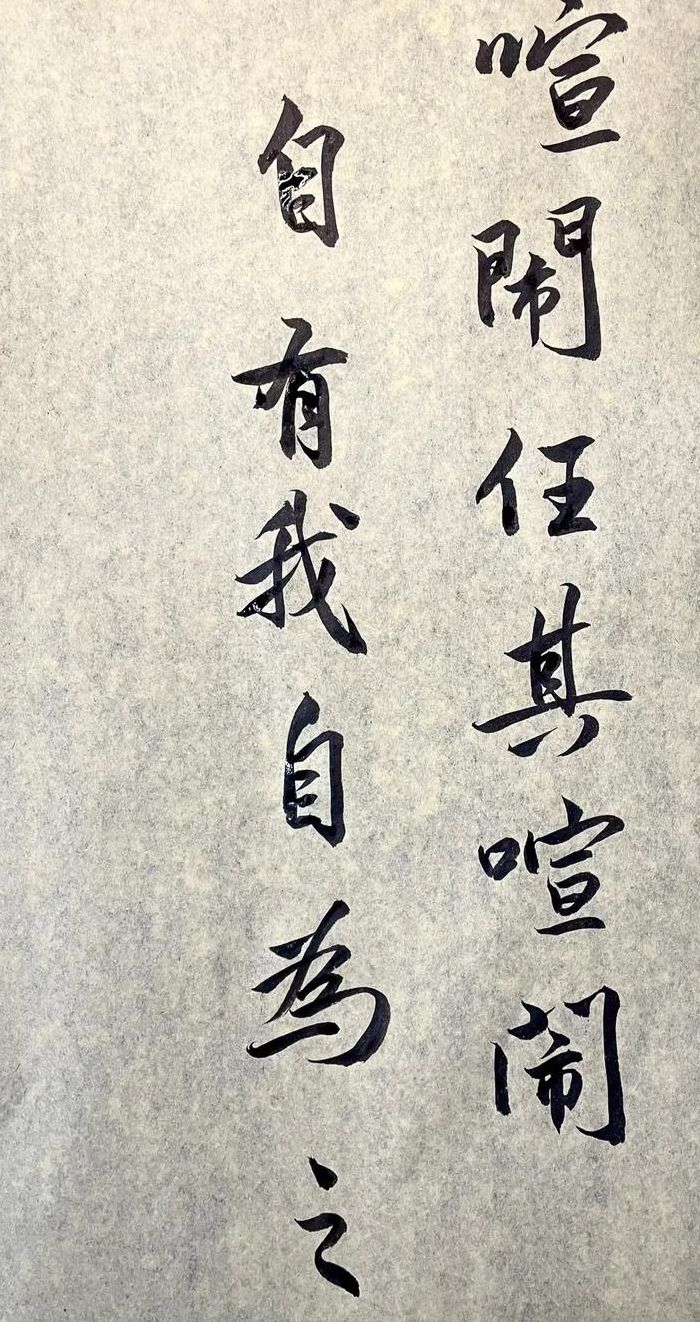 喧閙任其喧閙
自有我自為之